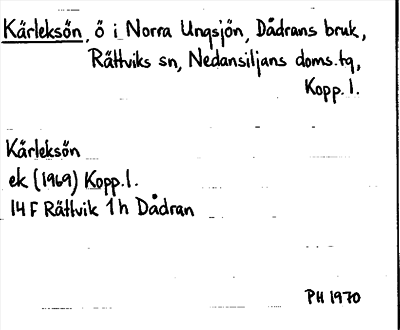 Kärleksön, ö i Norra Ungsjön, Dådrans bruk,
Rättviks sn, Nedansiljans doms.tg,
Kopp. l.
Kärleksön
ek (1969) Kopp. l.
14 F Rättvik 1 h Dådran
PH 1970